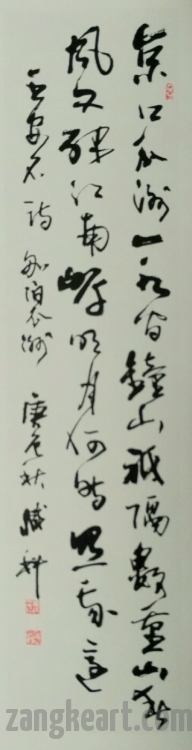 京口瓜洲一水间鐘山祇隔數重山春
風又綠江南岸明月何時照我還
王安石诗船泊瓜洲庚寅秋臧科
zangkeart.com